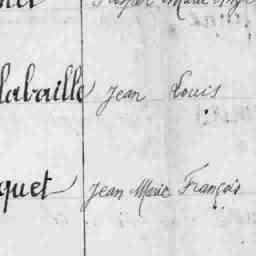 labaille Jean Louis
quet Jean Marie François